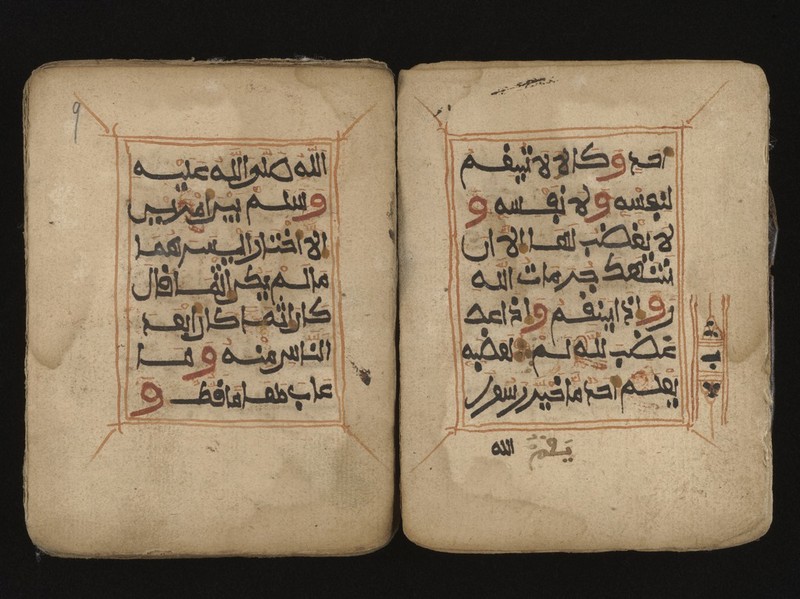 احد وكان لا ينتقم
لنفسه ولا و
لا يغضب لها الا ان
تنتهك حرمات الله
واذا
غضب لله لم لغضبه
احد ما خير رسول
الله
الله صلى الله عليه
وسلم بين امرين
الا اختار ايسرهما
ما لم يكن اثما فان
كان اثما كان ابعد
الناس منه وما
عاب طعاما قط و
9